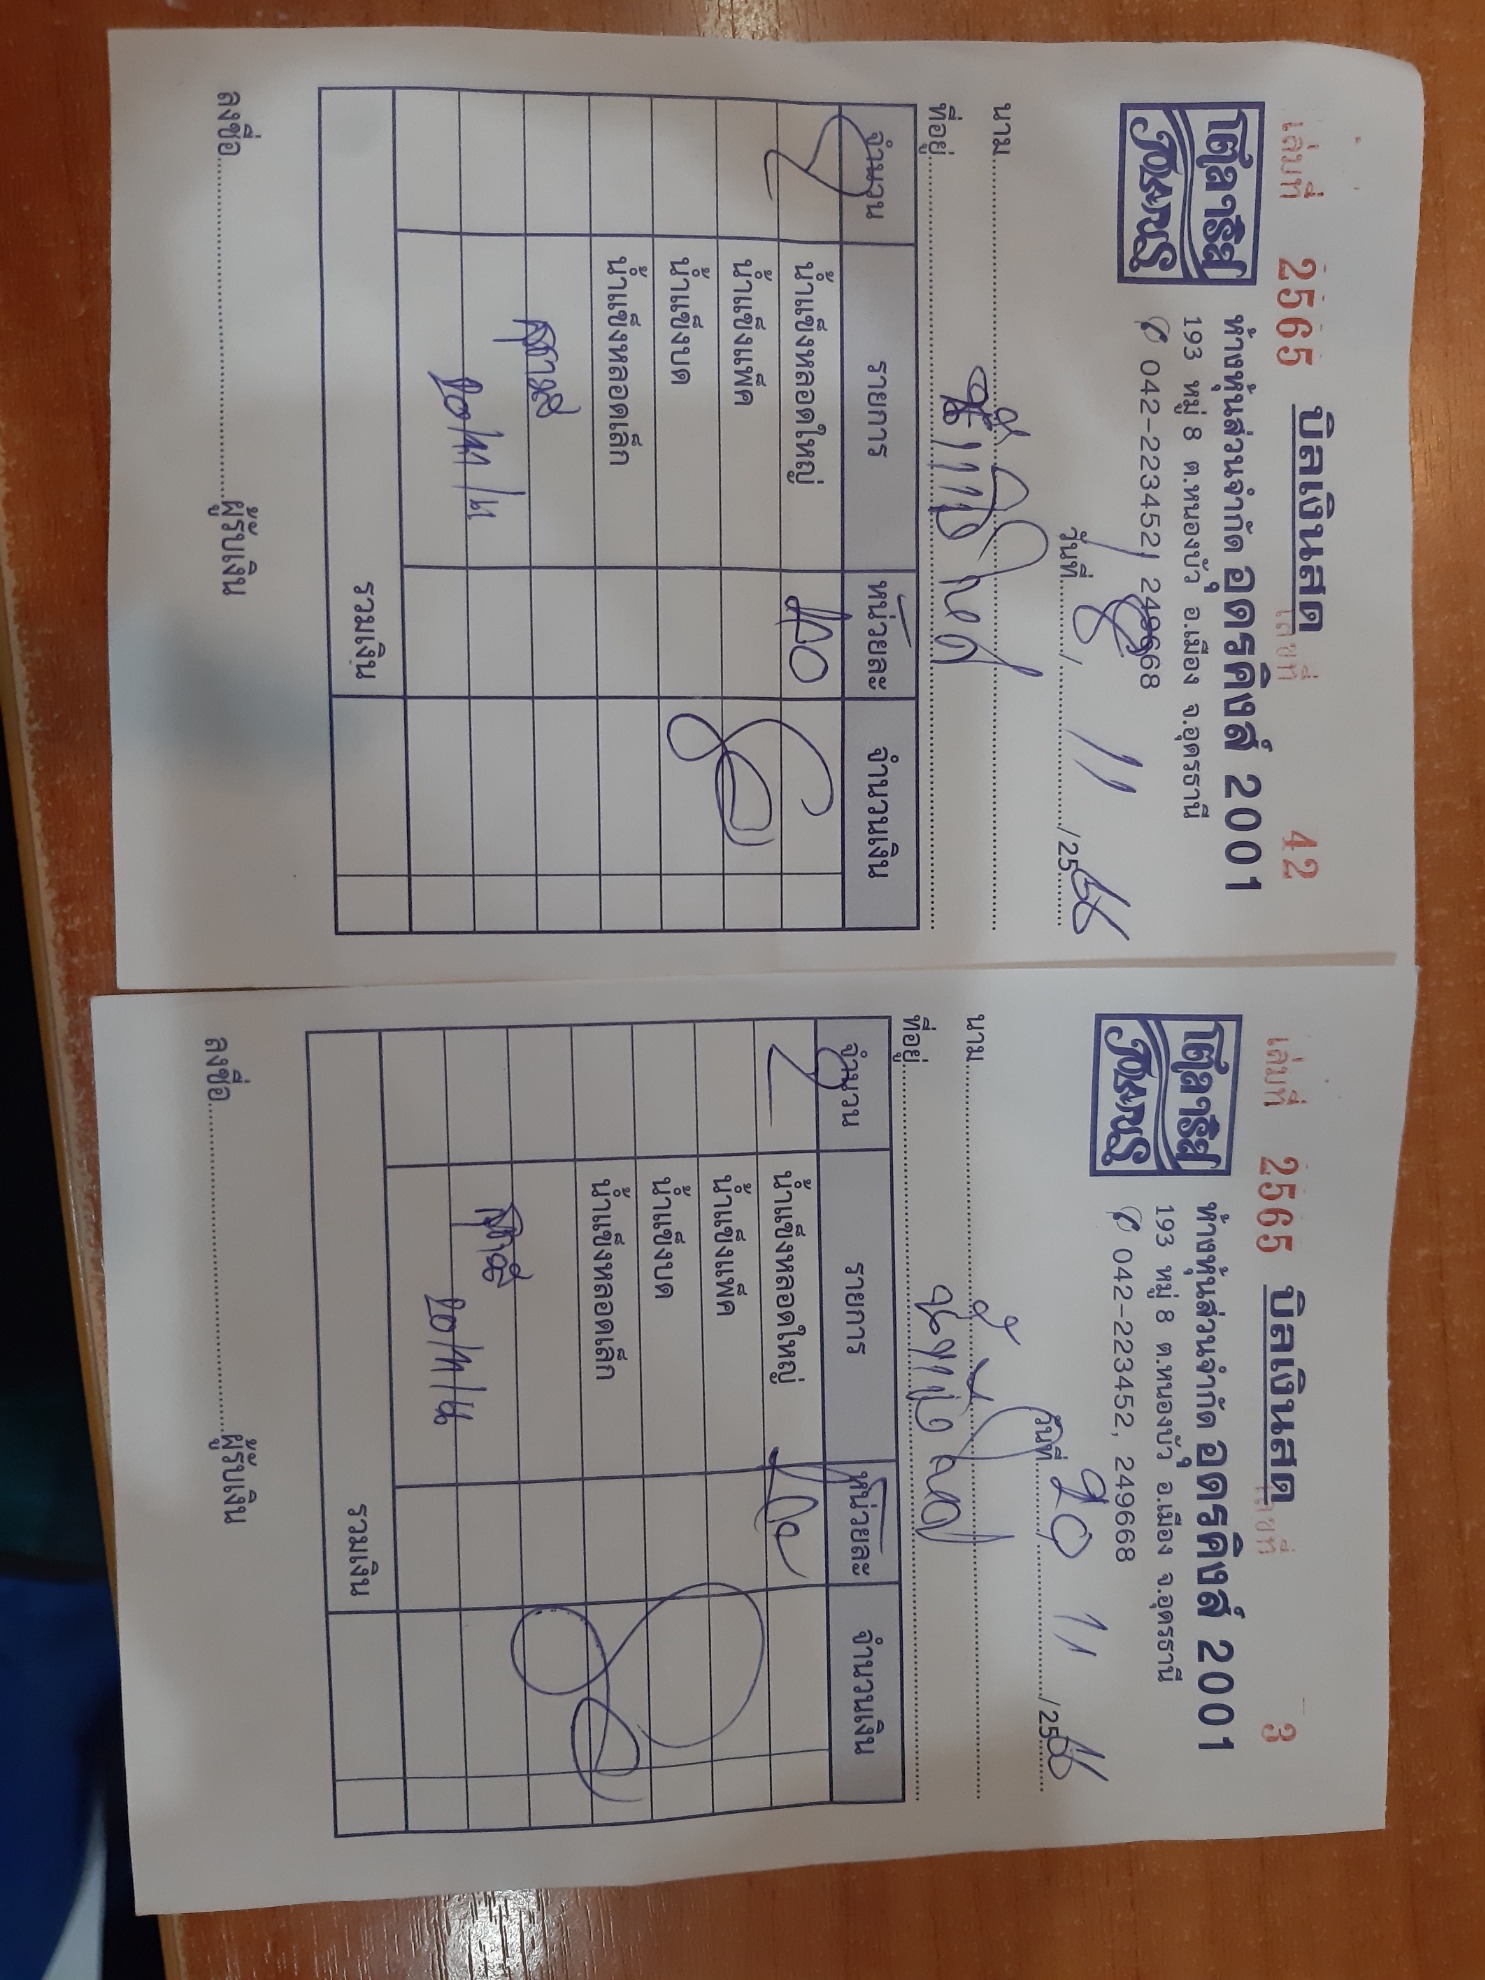 เล่มที่ 2565 บิลเงินสด เลขที่ 42
โตลาริส
POLARIS
ห้างหุ้นส่วนจำกัด อุดรคิงส์ 2001
193 หมู่ 8 ต.หนองบัว อ.เมือง จ.อุดรธานี
042-223452, 249668
วันที่ 18 / 11 /2566
นาม
ที่อยู่
จำนวน รายการ หน่วยละ จำนวนเงิน
2 น้ำแข็งหลอดใหญ่ 40 80
น้ำแข็งแพ็ค
น้ำแข็งบด
น้ำแข็งหลอดเล็ก
รวมเงิน
ลงชื่อ ผู้รับเงิน
เล่มที่ 2565 บิลเงินสด เลขที่ 3
โตลาริส
POLARIS
ห้างหุ้นส่วนจำกัด อุดรคิงส์ 2001
193 หมู่ 8 ต.หนองบัว อ.เมือง จ.อุดรธานี
042-223452, 249668
วันที่ 20 11 /2566
นาม
ที่อยู่
จำนวน รายการ หน่วยละ จำนวนเงิน
2 น้ำแข็งหลอดใหญ่ 40 80
น้ำแข็งแพ็ค
น้ำแข็งบด
น้ำแข็งหลอดเล็ก
รวมเงิน
ลงชื่อ ผู้รับเงิน